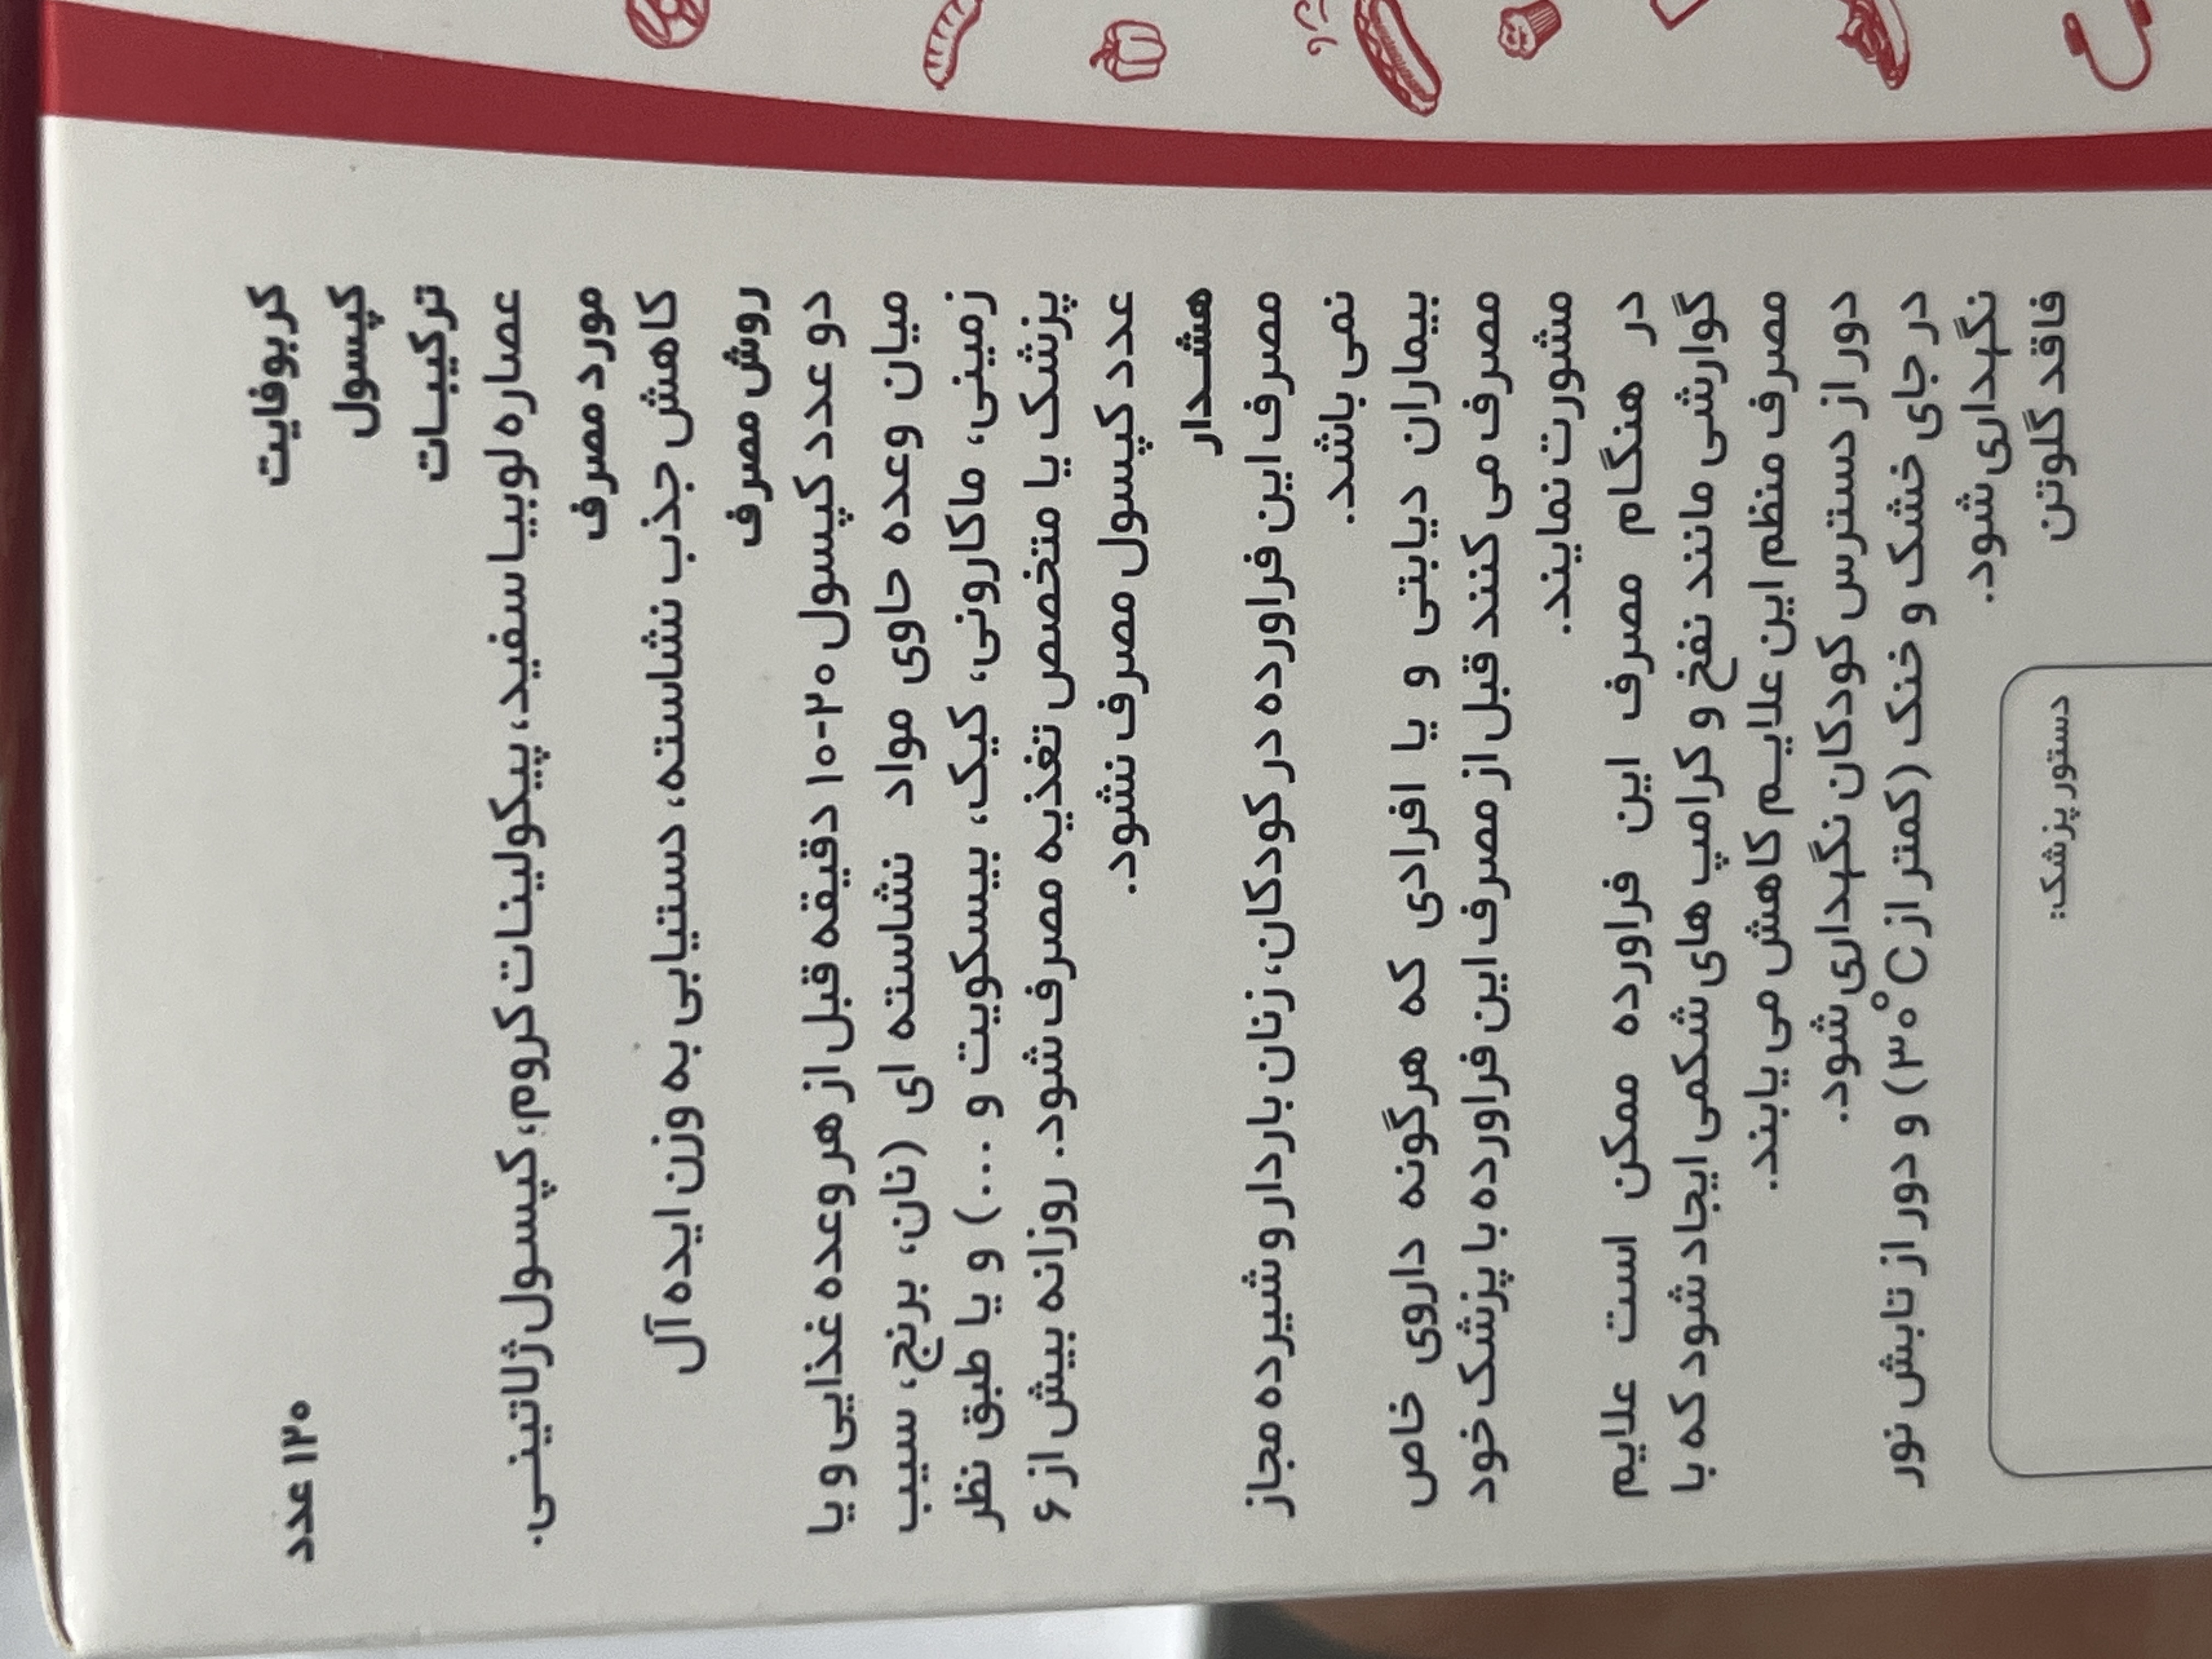 کربوفایت
۱۲۰ عدد
کپسول
ترکیبات
عصاره لوبیا سفید، پیکولینات کروم، کپسول ژلاتینی.
مورد مصرف
کاهش جذب نشاسته، دستیابی به وزن ایده آل
روش مصرف
دو عدد کپسول ۲۰-۱۰ دقیقه قبل از هر وعده غذایی و یا
میان وعده حاوی مواد نشاسته ای (نان، برنج، سیب
زمینی، ماکارونی، کیک، بیسکویت و ...) و یا طبق نظر
پزشک یا متخصص تغذیه مصرف شود. روزانه بیش از ۶
عدد کپسول مصرف نشود.
هشدار
مصرف این فراورده در کودکان، زنان باردار و شیرده مجاز
نمی باشد.
بیماران دیابتی و یا افرادی که هرگونه داروی خاص
مصرف می کنند قبل از مصرف این فراورده با پزشک خود
مشورت نمایند.
در هنگام مصرف این فراورده ممکن است علایم
گوارشی مانند نفخ و کرامپ های شکمی ایجاد شود که با
مصرف منظم این علایم کاهش می یابند.
دور از دسترس کودکان نگهداری شود.
در جای خشک و خنک (کمتر از ۳۰°C) و دور از تابش نور
نگهداری شود.
فاقد گلوتن
دستور پزشک: